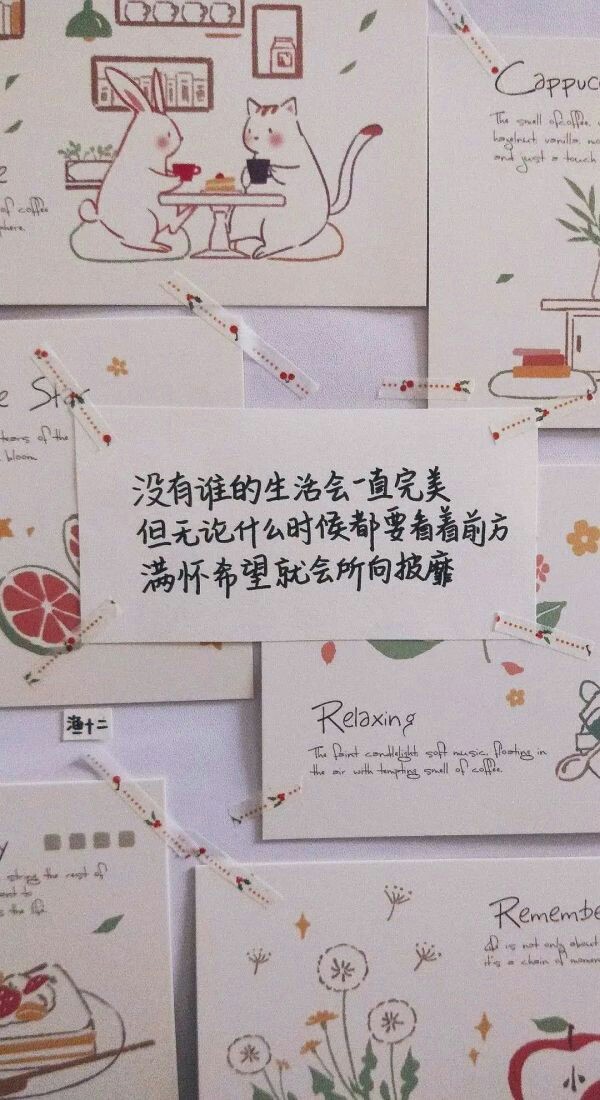 Cappuc
The smell of coffee,
hazelnut vanilla,
and just a touch
of coffee
Star
tears of the
bloom.
没有谁的生活会一直完美
但无论什么时候都要看着前方
满怀希望就会所向披靡
渔十二
Relaxing
The faint candlelight, soft music, floating in
the air with tempting smell of coffee.
string the rest of
the life.
Remembe
is not only about
it's a chain of momen